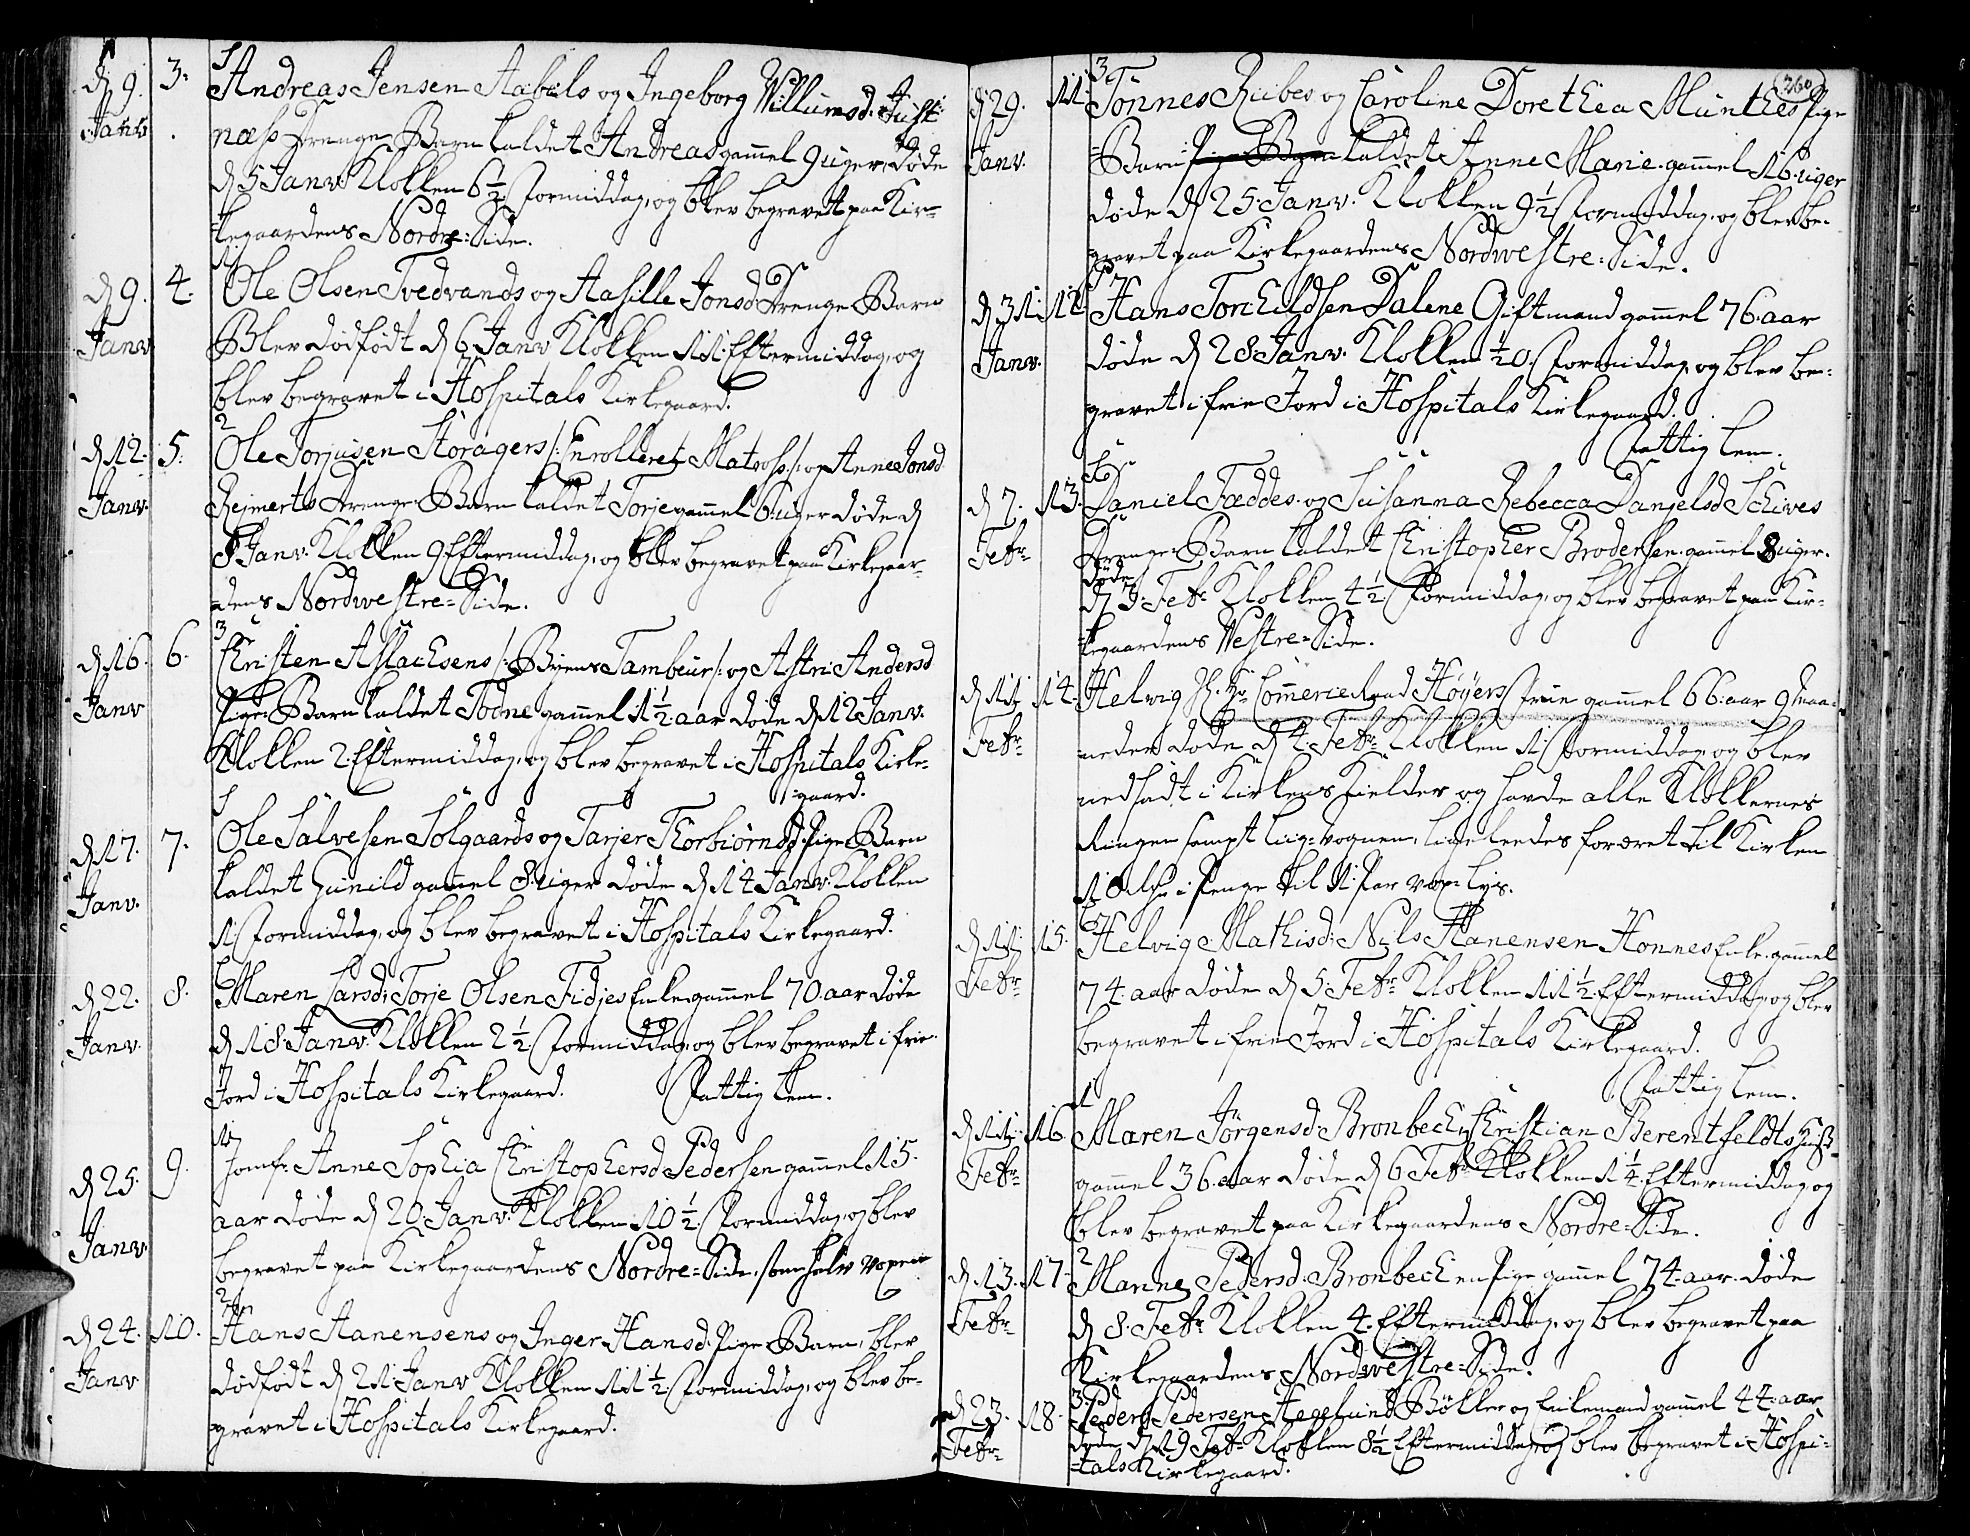 d 9. 3. Andreas Jensen Aabels og Ingeborg Willumsd. Just-
Janv. næss Drenge Barn kaldet Andreas gammel 9 uger døde
d 5 Janv. Klokken 6 1/2 Formiddag, og blev begravet paa Kir-
kegaardens Nordre-Side.
d 9. 4. Ole Olsen Tvedvands og Aasille Jonsd Drenge Barn
Janv. Blev dødfødt d 6 Janv Klokken 11 Eftermiddag, og
blev begravet i Hospitals Kirkegaard.
d 12. 5. Ole Torjusen Storagers /: Enrolleret Matros :/ og Anne Jonsd
Janv. Rejmerts Drenge Barn kaldet Torje gammel 6 uger døde d
8 Janv. Klokken 9 Eftermiddag, og blev begravet paa Kirkegaar-
dens Nordwestre-Side.
d 16. 6. Christen Aslachsens /: Byens Tambour :/ og Astri Andersd
Janv Pige Barn kaldet Todne gammel 1 1/2 aar døde d 12 Janv.
Klokken 2 Eftermiddag, og blev begravet i Hospitals Kirke-
gaard.
d 17. 7. Ole Salvesen Solgaards og Tarjer Thorbiørnsd. Pige Barn
Janv. kaldet Gunild gammel 8 uger døde d 14 Janv. Klokken
1 Formiddag, og blev begravet i Hospitals Kirkegaard.
d 22. 8. Maren Larsd. Torje Olsen Fidjes Enke gammel 70 aar døde
Janv. d 18. Janv. Klokken 2 1/2 Formiddag, og blev begravet i frie
Jord i Hospitals Kirkegaard. Fattig Lem.
d 23. 9. Jomfr. Anne Sophia Christophersd Pedersen gammel 15
Janv. aar døde d 20. Janv. Klokken 10 1/2 Formiddag, og blev
begravet paa Kirkegaardens Nordre-Side,
d 24. 10. Hans Hanensens og Inger Hansd. Pige Barn, blev
Janv dødfødt d 21 Janv Klokken 11 1/2 Formiddag, og blev be-
gravet i Hospitals Kirkegaard.
260
d 29. 11. Tønnes Rubes og Caroline Dorethea Munthes Pige
Janv. Barn Pige Barn kaldet Anne Marie gammel 16 uger
døde d 25. Janv. Klokken 9 1/2 Formiddag, og blev be-
gravet paa Kirkegaardens Nordwestre-Side.
d 31. 12. Hans Torchildsen Dalene Giftmand gammel 76 aar
Janv. døde d 28 Janv. Klokken Formiddag, og blev be-
gravet i frie Jord i Hospitals Kirkegaard.
Fattig Lem.
d 7. 13. Daniel Fæddes og Susanna Rebecca Danjelsd Schives
Febr. Drenge Barn kaldet Christopher Brodersen gammel 8 uger
døde
d 3. Febr. Klokken 4 1/2 Formiddag, og blev begravet paa Kir-
kegaardens Westre-Side.
d 11. 14. Helvig Commerceraad Høyers Frue gammel 66 aar 9 Maa-
Febr. neder døde d 4. Febr. Klokken 1 Formiddag, og blev
nedsadt i Kirkens Kielder og havde alle Klokkernes
Ringen sampt Liig-vognen, ligeleedes foræret til Kirken
i Penge til 1 Par vox Lys.
d 11. 15. Helvig Mathisd. Nils Hanensen Honnes Enke gammel
Febr. 74 aar døde d 5. Febr. Klokken 11 1/2 Eftermiddag, og blev
begravet i frie Jord i Hospitals Kirkegaard.
Fattig Lem.
d 11. 16. Maren Jørgensd. Bronbech, Christian Berentfeldts
Febr. gammel 36 aar døde d 6 Febr. Klokken 1 1/4 Eftermiddag og
blev begravet paa Kirkegaardens Nordre-Side.
d 13. 17. Marine Pedersd. Bronbech en Pige gammel 74 aar døde
Febr. d 8. Febr. Klokken 4 Eftermiddag, og blev begravet paa
Kirkegaardens Nordwestre-Side.
d 23. 18. Peder Pedersen Hegelund Bøkker og Enkemand gammel 44 aar
Febr. døde d 19 Febr. Klokken 8 1/2 Eftermiddag, og blev begravet i Hospi-
tals Kirkegaard.